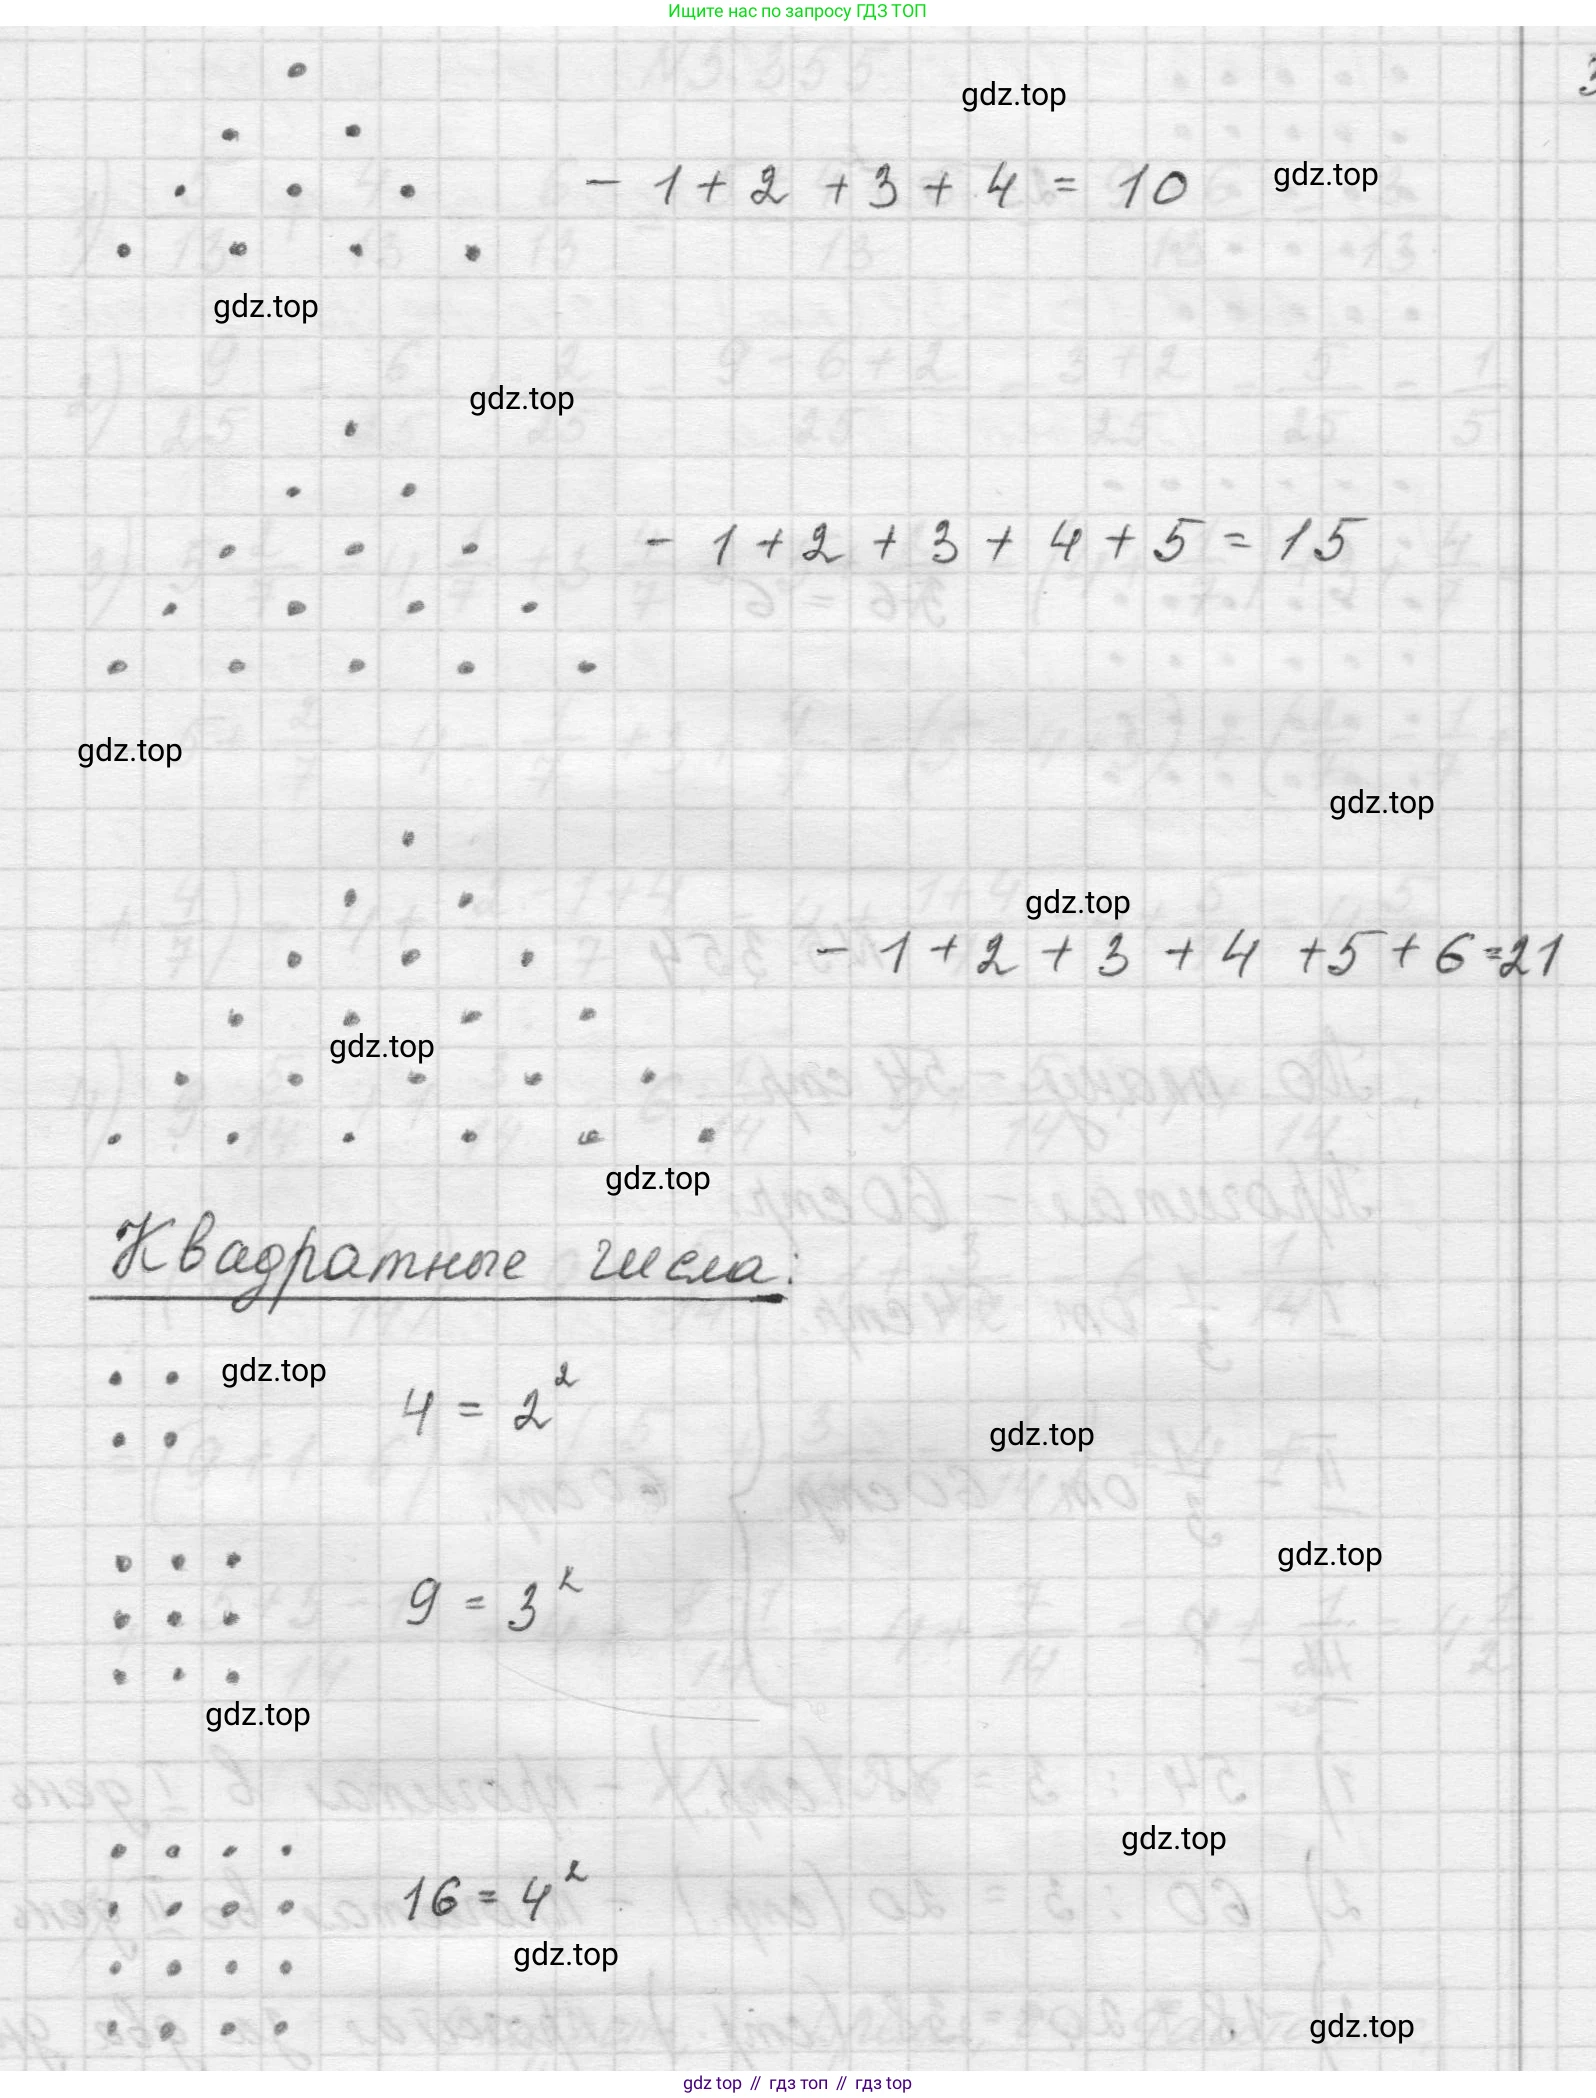 Ищите нас по запросу ГДЗ ТОП
gdz.top
- 1 + 2 + 3 + 4 = 10
gdz.top
gdz.top
gdz.top
- 1 + 2 + 3 + 4 + 5 = 15
gdz.top
gdz.top
gdz.top
- 1 + 2 + 3 + 4 + 5 + 6 = 21
gdz.top
gdz.top
Квадратные числа:
gdz.top
4 = 2²
gdz.top
gdz.top
9 = 3²
gdz.top
gdz.top
16 = 4²
gdz.top
gdz.top
gdz top // гдз топ // gdz top